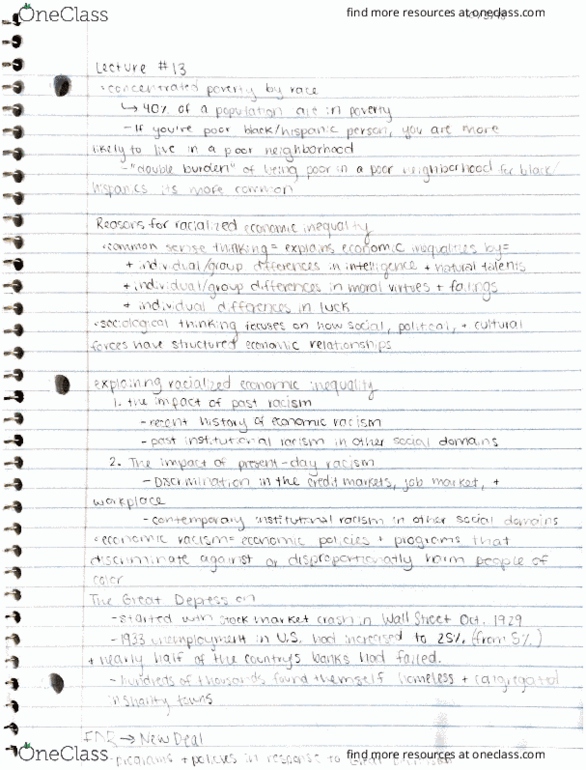 OneClass
find more resources at oneclass.com
Lecture #13
•concentrated poverty by race
↳ 40% of a population are in poverty
- If you're poor black/hispanic person, you are more
likely to live in a poor neighborhood
- "double burden" of being poor in a poor neighborhood for black/
hispanics its more common
Reasons for racialized economic inequality
•common sense thinking = explains economic inequalities by=
+ individual/group differences in intelligence + natural talents
+ individual/group differences in moral virtues + failings
+ individual differences in luck
•sociological thinking focuses on how social, political, + cultural
forces have structured economic relationships
explaining racialized economic inequality
1. the impact of past racism
- recent history of economic racism
- past institutional racism in other social domains
2. The impact of present-day racism
- Discrimination in the credit markets, job market, +
workplace
- contemporary institutional racism in other social domains
•economic racism= economic policies + programs that
discriminate against or disproportionatly harm people of
color
The Great Depression
- started with stock market crash in Wall Street Oct. 1929
- 1933 unemployment in U.S. had increased to 25% (from 5%)
+ nearly half of the country's banks had failed.
- hundreds of thousands found themself homeless + congregated
in shanty towns
FDR → New Deal
- programs + policies in response to
OneClass
find more resources at oneclass.com